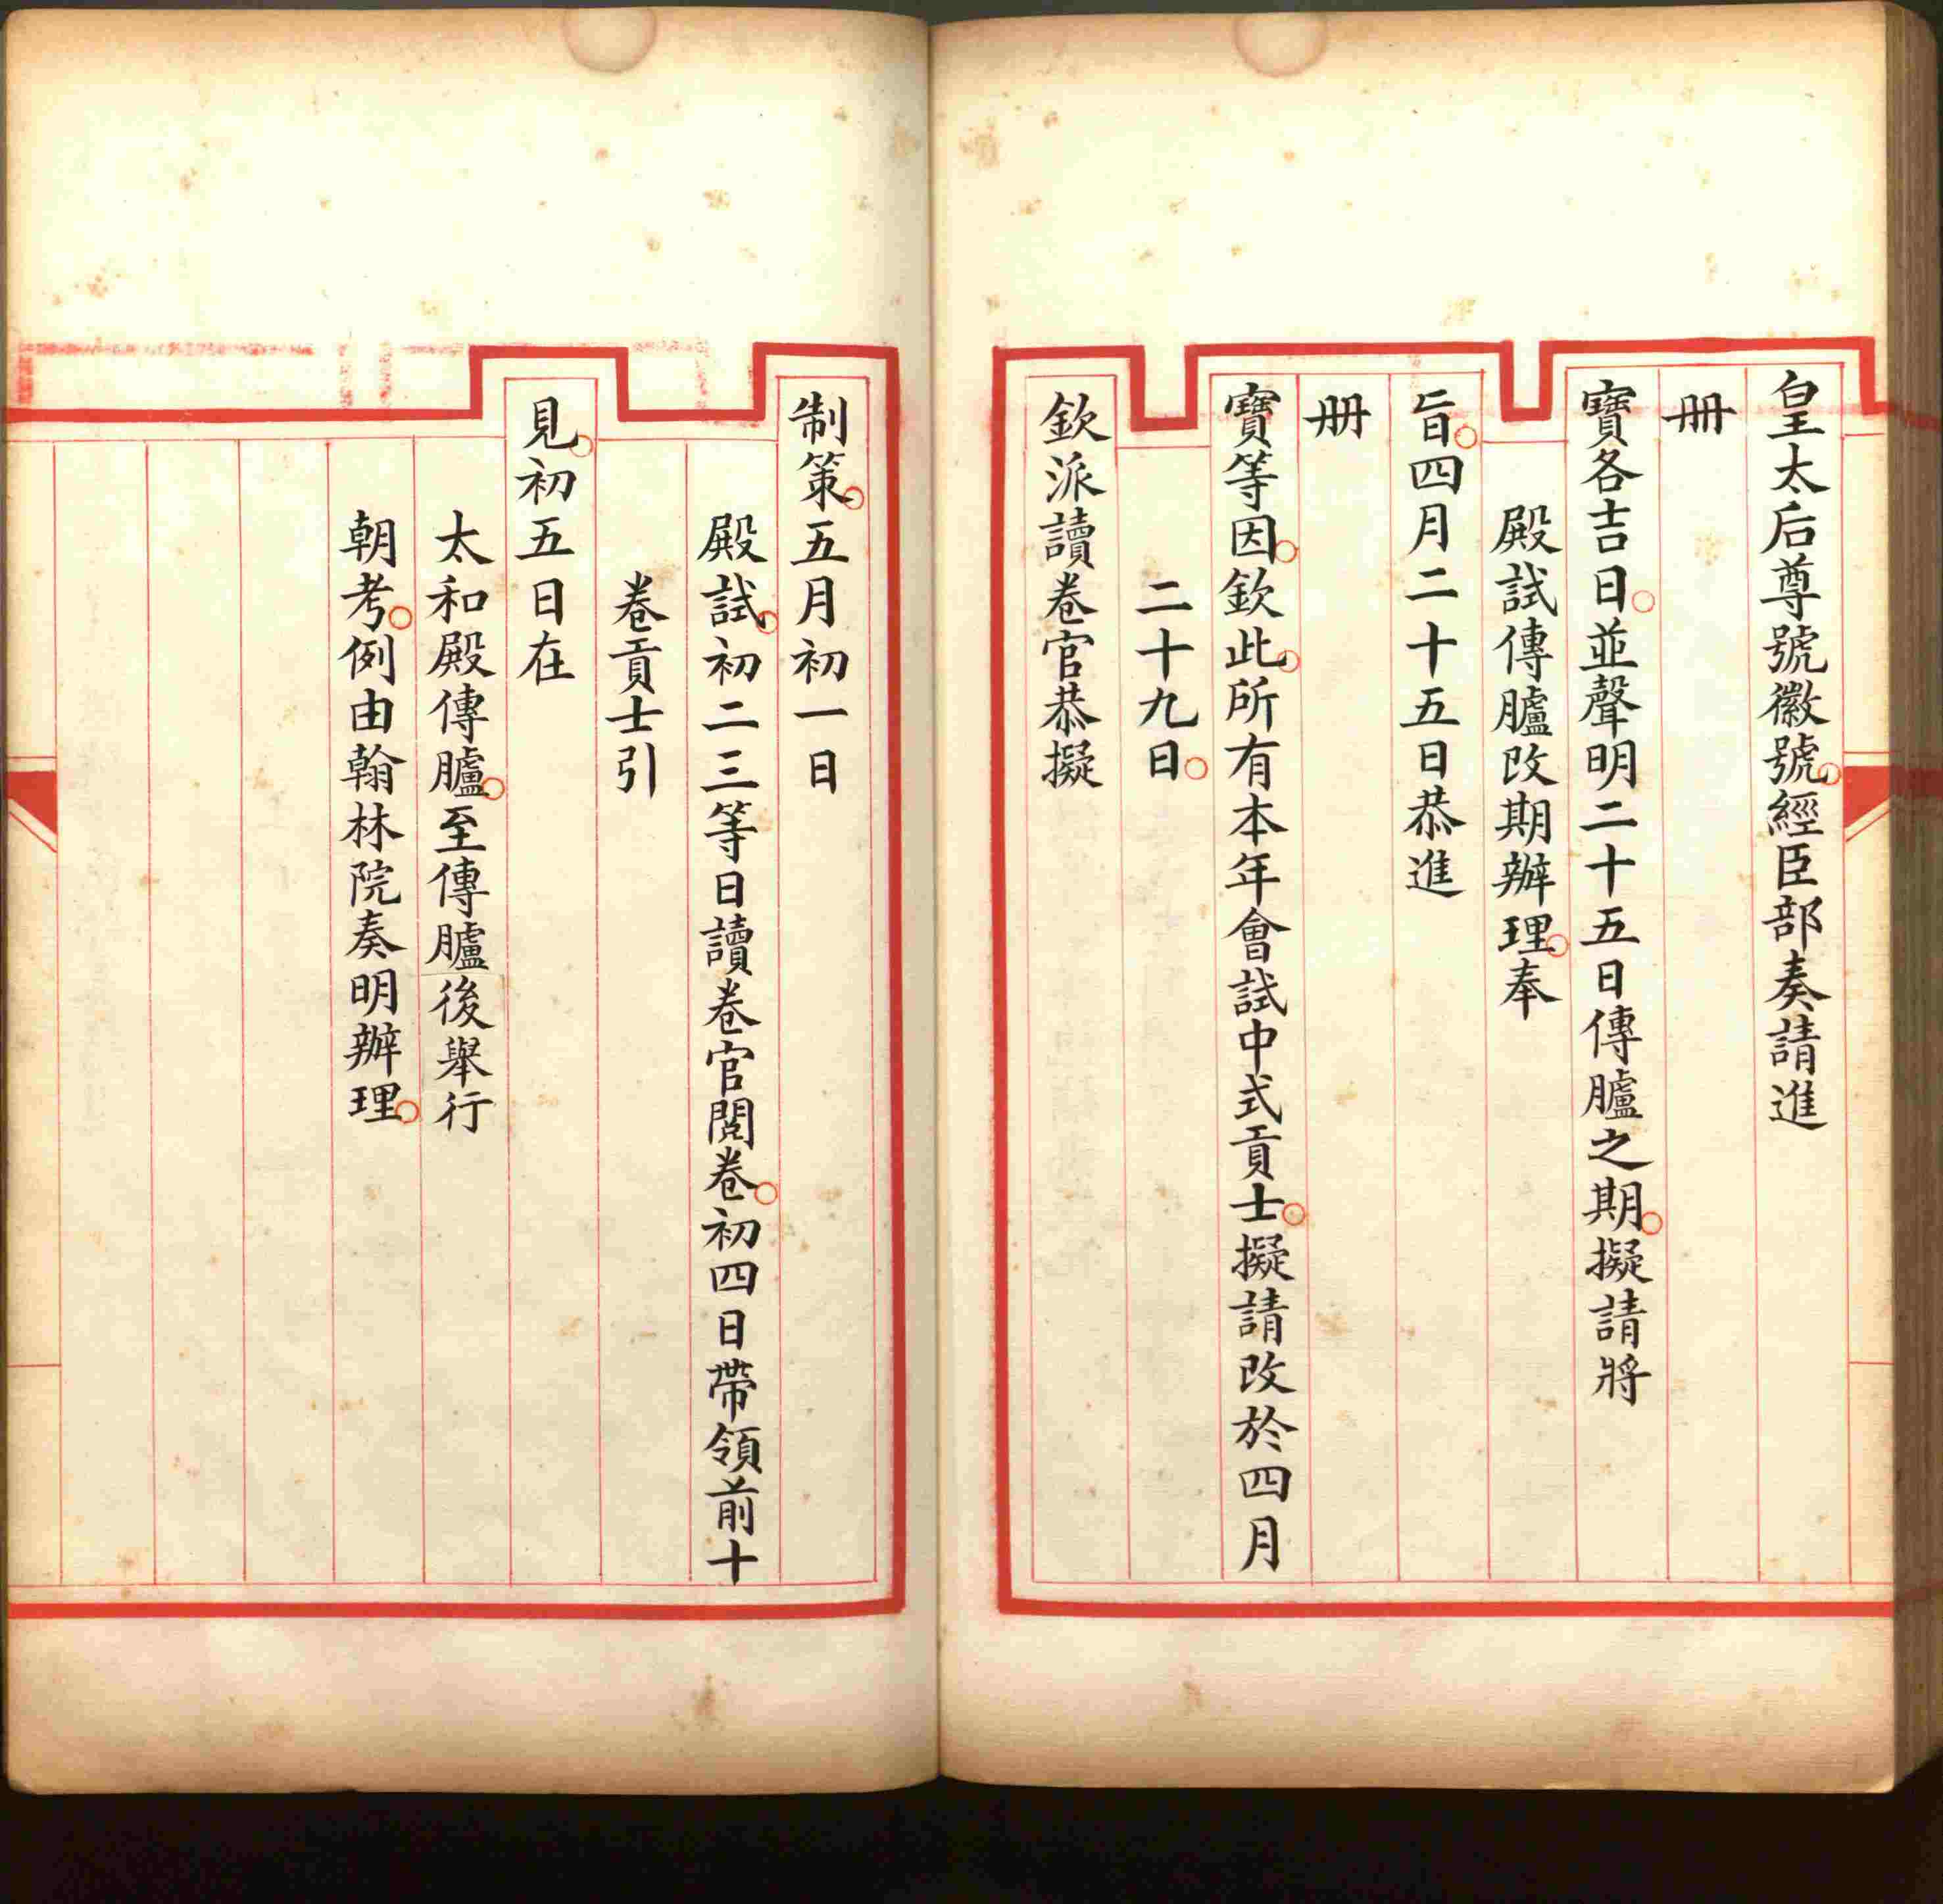 皇太后尊號徽號○經臣部奏請進
册
寶各吉日○並聲明二十五日傳臚之期○擬請將
殿試傳臚改期辦理○奉
旨○四月二十五日恭進
册
寶等因○欽此○所有本年會試中式貢士○擬請改於四月
二十九日○
欽派讀卷官恭擬
制策○五月初一日
殿試○初二三等日讀卷官閱卷○初四日帶領前十
卷貢士引
見○初五日在
太和殿傳臚○至傳臚後舉行
朝考○例由翰林院奏明辦理○